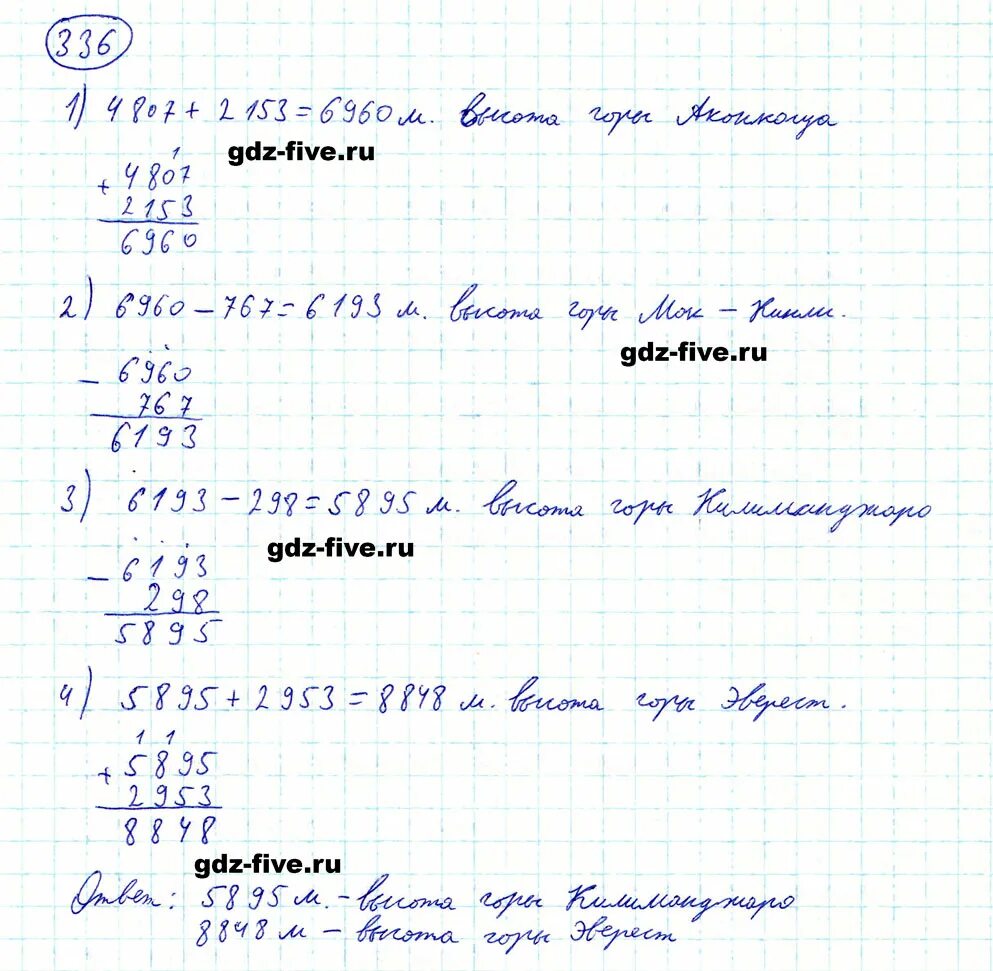 336
1) 4807 + 2153 = 6960 м. высота горы Аконкогуа
gdz-five.ru
1
+ 4807
2153
6960
2) 6960 – 767 = 6193 м. высота горы Мак – Кинли.
gdz-five.ru
– 6960
767
6193
3) 6193 – 298 = 5895 м. высота горы Килиманджаро
gdz-five.ru
– 6193
298
5895
4) 5895 + 2953 = 8848 м. высота горы Эверест.
1 1
+ 5895
2953
8848
gdz-five.ru
Ответ: 5895 м. – высота горы Килиманджаро
8848 м – высота горы Эверест